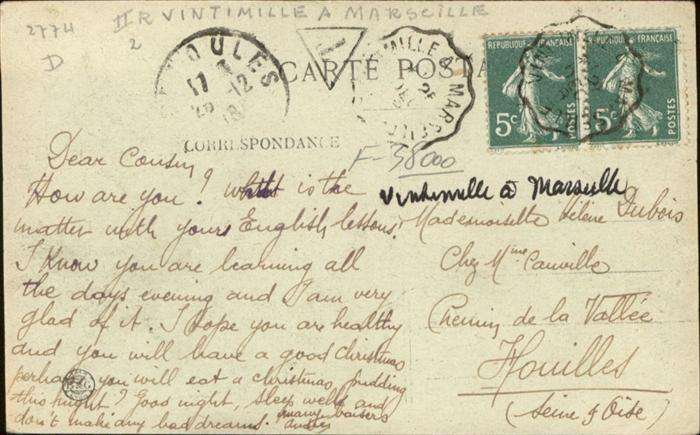 IIR VINTIMILLE A MARSEILLE
2774
2
D
HOUILLES
17
12
CARTE POSTA
VINTIMILLE A MARS
REPUBLIQUE FRANÇAISE
5c
POSTES
REPUBLIQUE FRANÇAISE
5c
POSTES
CORRESPONDANCE
F-38000
Vintimille à Marseille
Dear Cousin
How are you? What is the
matter with yours English lessons?
I Know you are learning all
the days evening and I am very
glad of it. I hope you are healthy
and you will have a good Christmas
perhaps you will eat a christmas pudding
this night? Good night, sleep well and
don't make any bad dreams. many baisers
Mademoiselle Hélène Dubois
Chez Mme Canville
Chemin de la Vallée
Houilles
(Seine & Oise)